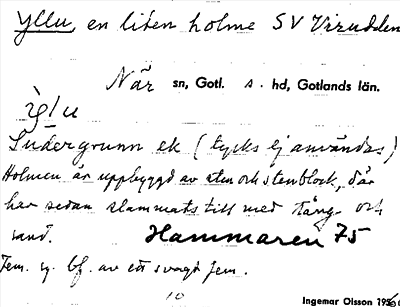 Yllu, en liten holme SV Virudden
När sn, Gotl. s. hd, Gotlands län.
ỳlu
Sudergrunn ek (tycks ej användas)
Holmen är uppbyggd av sten och stenblock, där
har sedan slammats till med tång- och
sand. Hammaren 75
Fem. y. bf. av ett svagt fem.
10
Ingemar Olsson 1956